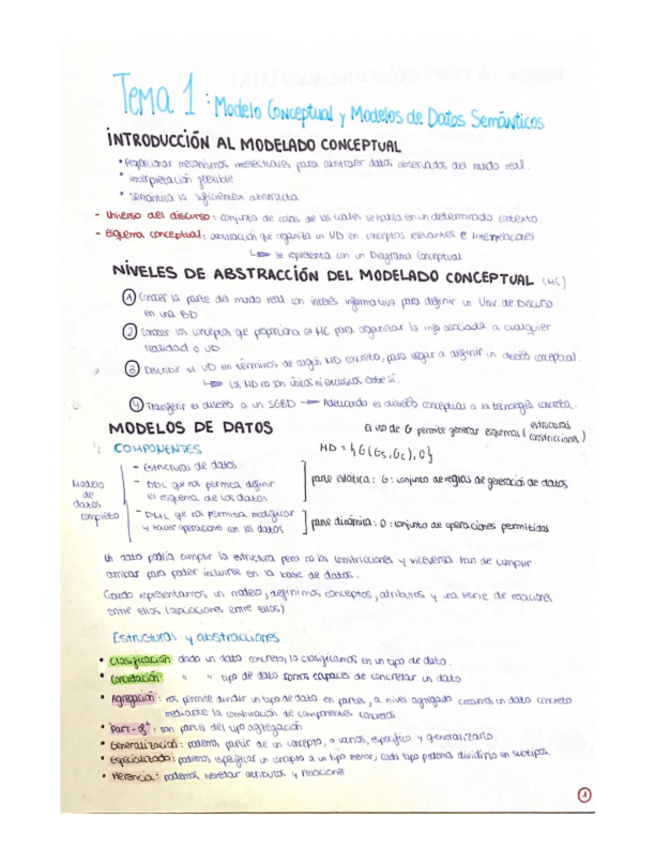 Tema 1: Modelo Conceptual y Modelos de Datos Semánticos
INTRODUCCIÓN AL MODELADO CONCEPTUAL
• Proporcionar mecanismos intelectuales para abstraer datos observados del mundo real.
• interpretación flexible
• semántica la suficiencia abstracta
- Universo del discurso: conjunto de cosas de las cuales se habla en un determinado contexto
- esquema conceptual: abstracción que organiza un UD en conceptos relevantes e interrelaciones
↳ se representa con un Diagrama Conceptual
NIVELES DE ABSTRACCIÓN DEL MODELADO CONCEPTUAL (MC)
① Conocer la parte del mundo real con interés informativo para definir un Univ. de Discurso
en una BD
② Conocer los conceptos que proporciona el MC para organizar la info asociada a cualquier
realidad o UD
③ Describir el UD en términos de algún MD concreto, para llegar a definir un diseño conceptual.
↳ los MD no son únicos ni exclusivos entre sí.
④ Transferir el diseño a un SGBD → Adecuando el diseño conceptual a la tecnología concreta.
MODELOS DE DATOS
El uso de G permite generar esquemas (estructuras
constricciones)
COMPONENTES
MD = {G(Gs, Gc), O}
Modelo
de
datos
completo
- Estructuras de datos
- DDL que nos permita definir
el esquema de los datos
parte estática: G: conjunto de reglas de generación de datos
- DML que nos permita modificar
y hacer operaciones con los datos
parte dinámica: O: conjunto de operaciones permitidas
Un dato podría cumplir la estructura pero no las constricciones y viceversa han de cumplir
ambas para poder incluirse en la base de datos.
Cuando representamos un modelo, definimos conceptos, atributos y una serie de relaciones
entre ellos (asociaciones entre ellos)
Estructural y abstracciones
• Clasificación dado un dato concreto, lo clasificamos en un tipo de dato.
• Concretación " " tipo de dato somos capaces de concretar un dato
• Agregación: nos permite dividir un tipo de dato en partes, a nivel agregado creamos un dato concreto
mediante la combinación de componentes concretos
• "Part-of": son partes del tipo agregación
• Generalización: podemos partir de un concepto, o varios, específico y generalizarlo.
• Especializado: podemos especificar un concepto a un tipo menor, cada tipo podemos dividirlo en subtipos.
• Herencia: podemos heredar atributos y relaciones
1